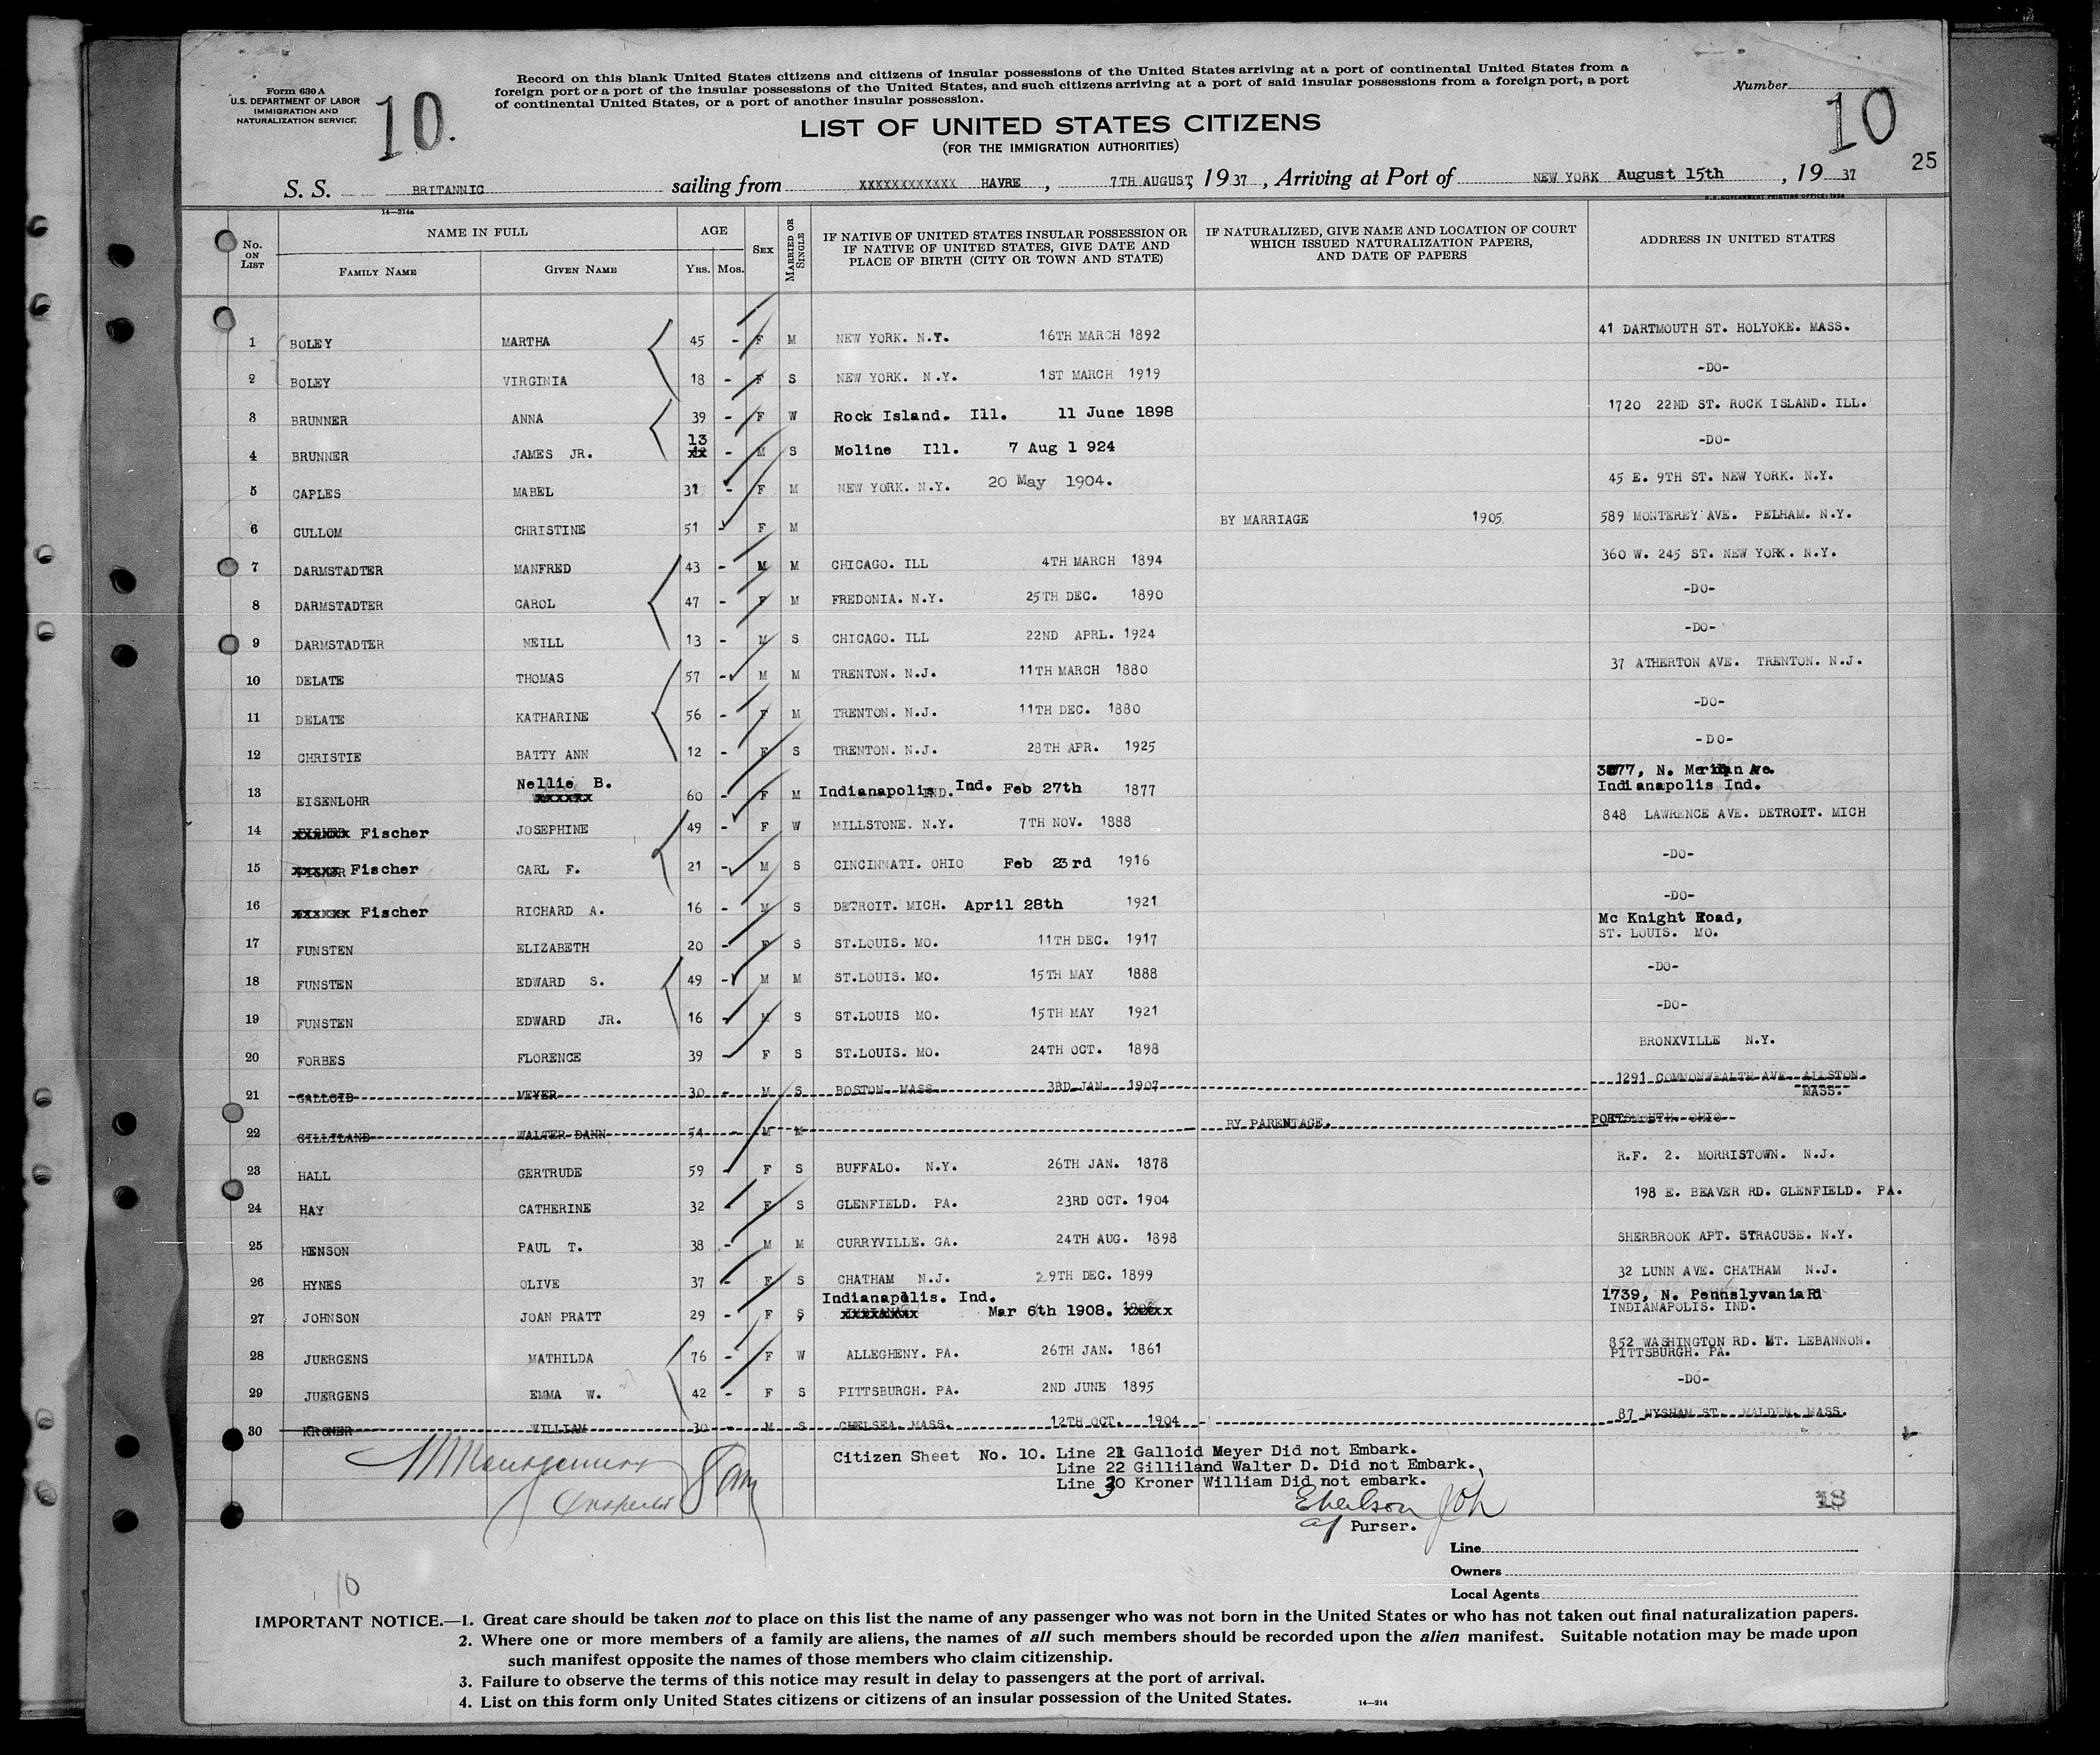 Form 630 A
U.S. DEPARTMENT OF LABOR
IMMIGRATION AND
NATURALIZATION SERVICE
10.
Record on this blank United States citizens and citizens of insular possessions of the United States arriving at a port of continental United States from a
foreign port or a port of the insular possessions of the United States, and such citizens arriving at a port of said insular possessions from a foreign port, a port
of continental United States, or a port of another insular possession.
Number
10
25
LIST OF UNITED STATES CITIZENS
(FOR THE IMMIGRATION AUTHORITIES)
S. S. BRITANNIC sailing from XXXXXXXXXXXX HAVRE, 7TH AUGUST, 1937, Arriving at Port of NEW YORK August 15th, 1937
14—214a
U.S. GOVERNMENT PRINTING OFFICE: 1936
No. ON LIST
NAME IN FULL
FAMILY NAME
GIVEN NAME
AGE
YRS. MOS.
SEX
MARRIED OR SINGLE
IF NATIVE OF UNITED STATES INSULAR POSSESSION OR
IF NATIVE OF UNITED STATES, GIVE DATE AND
PLACE OF BIRTH (CITY OR TOWN AND STATE)
IF NATURALIZED, GIVE NAME AND LOCATION OF COURT
WHICH ISSUED NATURALIZATION PAPERS,
AND DATE OF PAPERS
ADDRESS IN UNITED STATES
1 BOLEY MARTHA 45 - F M NEW YORK. N.Y. 16TH MARCH 1892 41 DARTMOUTH ST. HOLYOKE. MASS.
2 BOLEY VIRGINIA 18 - F S NEW YORK. N.Y. 1ST MARCH 1919 -DO-
3 BRUNNER ANNA 39 - F W Rock Island. Ill. 11 June 1898 1720 22ND ST. ROCK ISLAND. ILL.
4 BRUNNER JAMES JR. 13 xx - M S Moline Ill. 7 Aug 1 924 -DO-
5 CAPLES MABEL - F M NEW YORK. N.Y. 20 May 1904. 45 E. 9TH ST. NEW YORK. N.Y.
6 CULLOM CHRISTINE 51 - F M BY MARRIAGE 1905 589 MONTEREY AVE. PELHAM. N.Y.
7 DARMSTADTER MANFRED 43 - M M CHICAGO. ILL 4TH MARCH 1894 360 W. 245 ST. NEW YORK. N.Y.
8 DARMSTADTER CAROL 47 - F M FREDONIA. N.Y. 25TH DEC. 1890 -DO-
9 DARMSTADTER NEILL 13 - M S CHICAGO. ILL 22ND APRL. 1924 -DO-
10 DELATE THOMAS 57 - M M TRENTON. N.J. 11TH MARCH 1880 37 ATHERTON AVE. TRENTON. N.J.
11 DELATE KATHARINE 56 - F M TRENTON. N.J. 11TH DEC. 1880 -DO-
12 CHRISTIE BATTY ANN 12 - F S TRENTON. N.J. 28TH APR. 1925 -DO-
13 EISENLOHR Nellie B. xxxxxx 60 - F M Indianapolis Ind. Feb 27th 1877 N. Meridian Ave.
Indianapolis Ind.
14 xxxxxx Fischer JOSEPHINE 49 - F W MILLSTONE. N.Y. 7TH NOV. 1888 848 LAWRENCE AVE. DETROIT. MICH
15 xxxxx Fischer CARL F. 21 - M S CINCINNATI. OHIO Feb 23rd 1916 -DO-
16 xxxxxx Fischer RICHARD A. 16 - M S DETROIT. MICH. April 28th 1921 -DO-
17 FUNSTEN ELIZABETH 20 - F S ST.LOUIS. MO. 11TH DEC. 1917 Mc Knight Road,
ST. LOUIS. MO.
18 FUNSTEN EDWARD S. 49 - M M ST.LOUIS. MO. 15TH MAY 1888 -DO-
19 FUNSTEN EDWARD JR. 16 - M S ST.LOUIS MO. 15TH MAY 1921 -DO-
20 FORBES FLORENCE 39 - F S ST.LOUIS. MO. 24TH OCT. 1898 BRONXVILLE N.Y.
21 GALLOID MEYER 30 - M S BOSTON MASS 3RD JAN 1907 1291 COMMONWEALTH AVE ALLSTON
MASS.
22 GILLILAND WALTER DANN 54 - M M BY PARENTAGE. PORTSMOUTH OHIO
23 HALL GERTRUDE 59 - F S BUFFALO. N.Y. 26TH JAN. 1878 R.F. 2. MORRISTOWN. N.J.
24 HAY CATHERINE 32 - F S GLENFIELD. PA. 23RD OCT. 1904 198 E. BEAVER RD. GLENFIELD. PA.
25 HENSON PAUL T. 38 - M M CURRYVILLE. GA. 24TH AUG. 1898 SHERBROOK APT. STRACUSE. N.Y.
26 HYNES OLIVE 37 - F S CHATHAM N.J. 29TH DEC. 1899 32 LUNN AVE. CHATHAM N.J.
27 JOHNSON JOAN PRATT 29 - F S Indianapolis. Ind. xxxxxxxxx Mar 6th 1908. xxxxx 1739, N. Pennslyvania Rd
INDIANAPOLIS. IND.
28 JUERGENS MATHILDA 76 - F W ALLEGHENY. PA. 26TH JAN. 1861 852 WASHINGTON RD. MT. LEBANNON.
PITTSBURGH. PA.
29 JUERGENS EMMA W. 42 - F S PITTSBURGH. PA. 2ND JUNE 1895 -DO-
30 KRONER WILLIAM 30 - M S CHELSEA. MASS. 12TH OCT. 1904 87 NYSHAM ST. MALDEN. MASS.
Citizen Sheet No. 10. Line 21 Galloid Meyer Did not Embark.
Line 22 Gilliland Walter D. Did not Embark.
Line 30 Kroner William Did not embark.
Purser.
18
Line
Owners
Local Agents
10
IMPORTANT NOTICE.—1. Great care should be taken not to place on this list the name of any passenger who was not born in the United States or who has not taken out final naturalization papers.
2. Where one or more members of a family are aliens, the names of all such members should be recorded upon the alien manifest. Suitable notation may be made upon
such manifest opposite the names of those members who claim citizenship.
3. Failure to observe the terms of this notice may result in delay to passengers at the port of arrival.
4. List on this form only United States citizens or citizens of an insular possession of the United States.
14—214